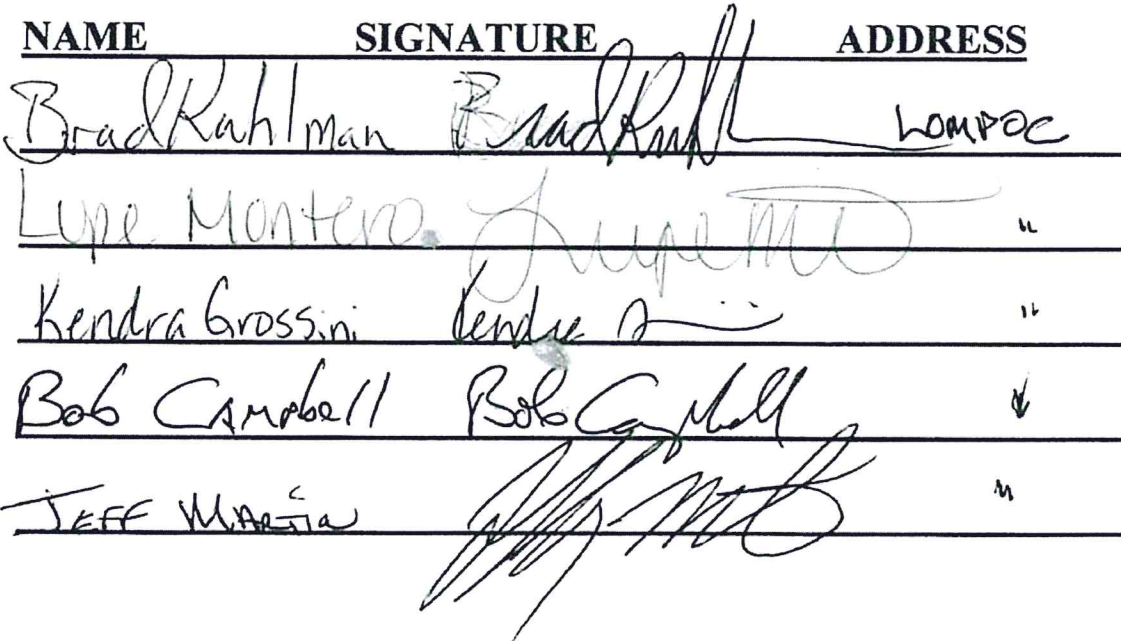 NAME SIGNATURE ADDRESS
Brad Kahlman Brad Kahl LOMPOC
Lupe Montero. Lupe Mo "
Kendra Grossini Kendra "
Bob Campbell Bob Campbell ↓
JEFF MARTIN "